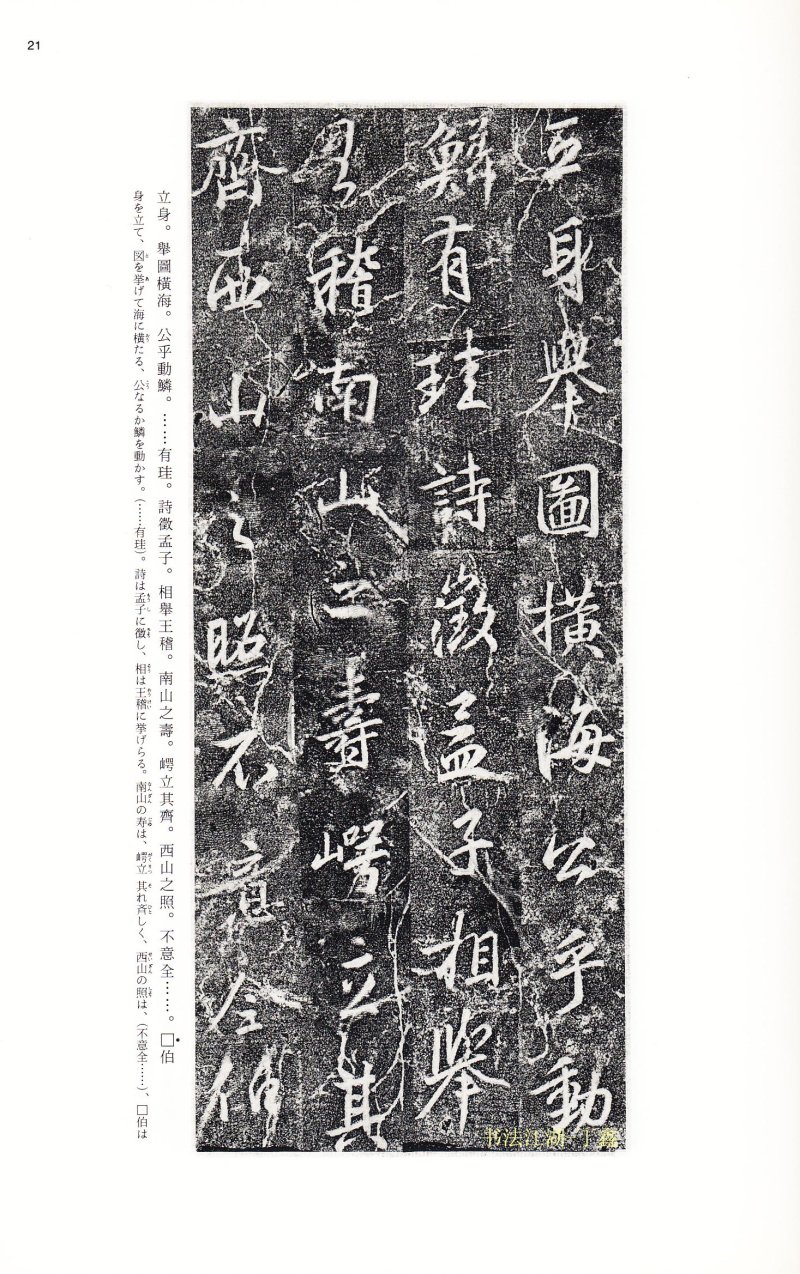 21
立身舉圖橫海公乎動
鱗有珪詩徵孟子相舉
王稽南山之壽崿立其
齊西山之照不意全伯
立身。舉圖橫海。公乎動鱗。……有珪。詩徵孟子。相舉王稽。南山之壽。崿立其齊。西山之照。不意全……。□伯
身を立て、図を挙げて海に横たる、公なるか鱗を動かす。(……有珪)。詩は孟子に徵し、相は王稽に挙げらる。南山の寿は、崿立其れ斉しく、西山の照は、(不意全……)、□伯は
书法江湖